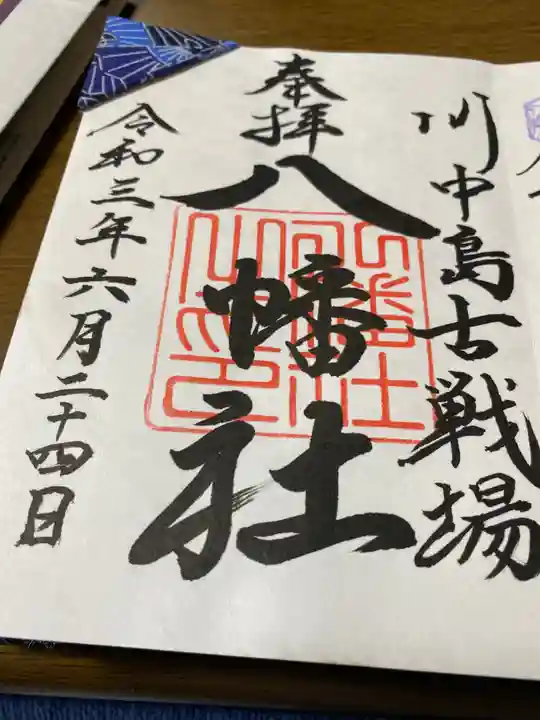 川中島古戦場
奉拝
八幡社
令和三年六月二十四日